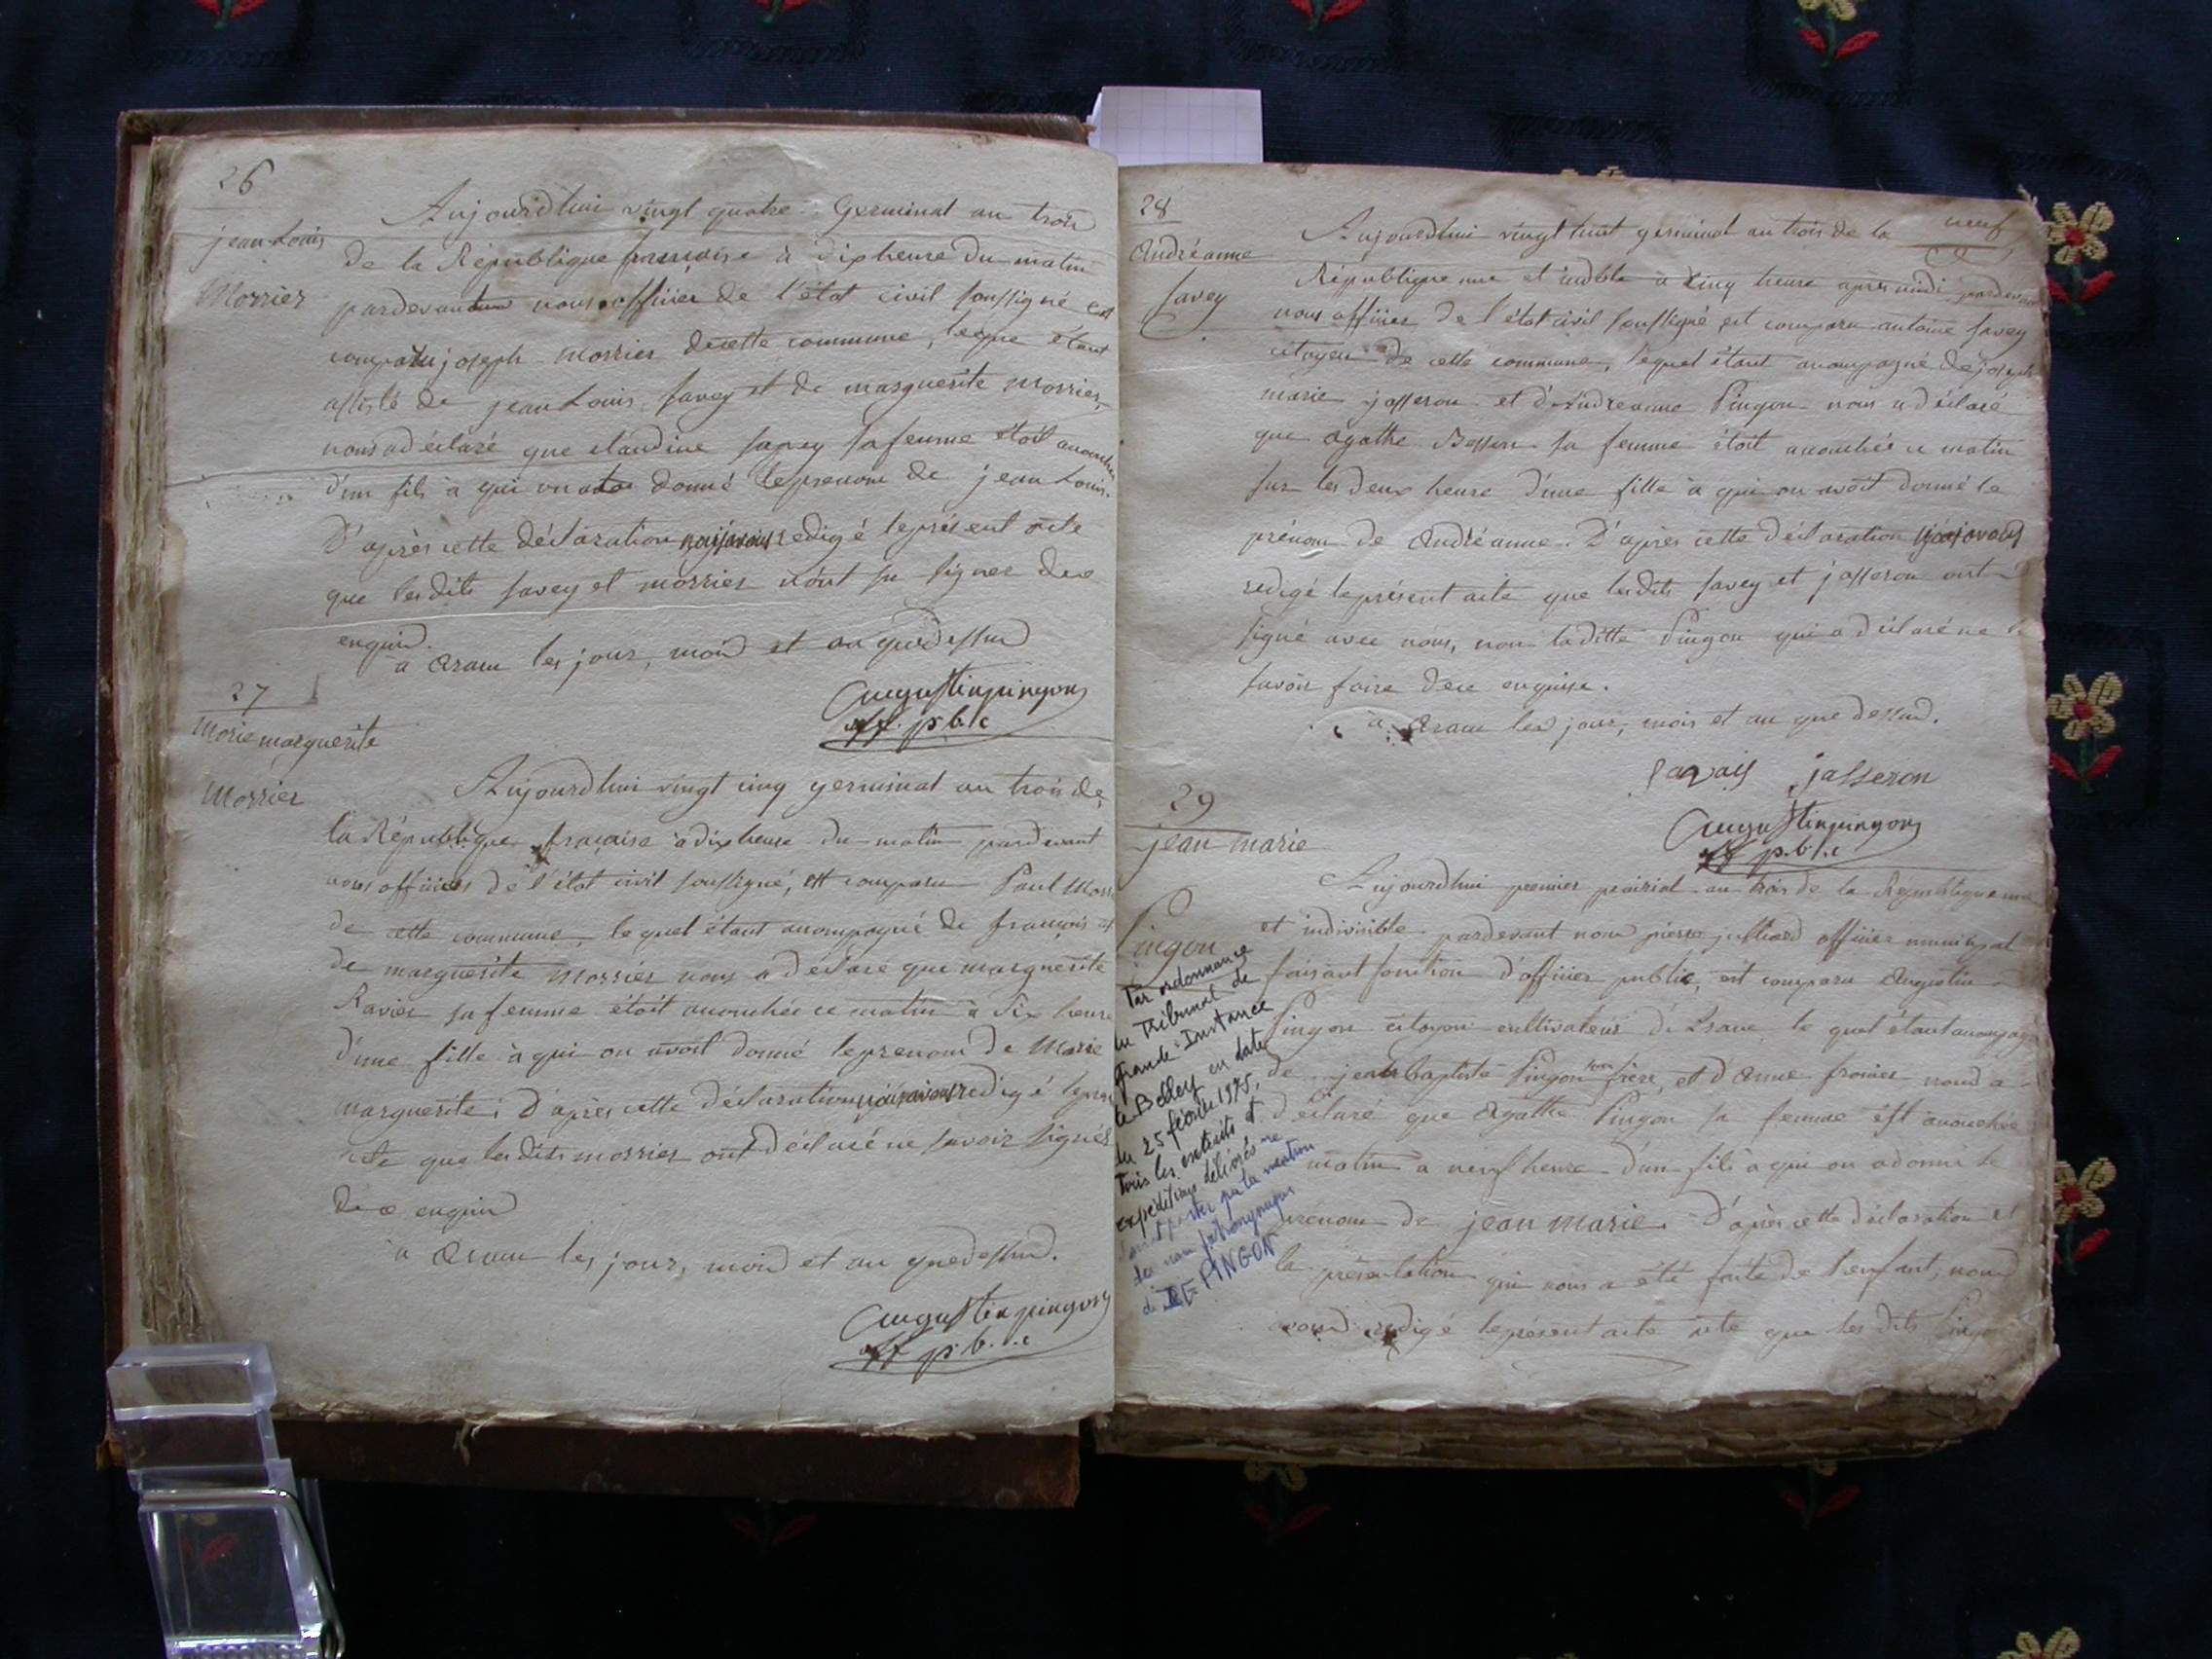 26
jean Louis
Morrier
Aujourdhui vingt quatre Germinal an trois
de la République française à dix heure du matin
pardevant nous officier de l'état civil soussigné est
comparu joseph Morrier de cette commune, lequel étant
assisté de jean Louis Savey et de marguerite Morrier,
nous a déclaré que claudine Savey sa femme étoit accouchée
d'un fils à qui on a donné le prenom de jean Louis.
D'après cette déclaration nous avons redigé le présent acte
que les dits Savey et morrier n'ont su signer de ce
enquis.
à Arane les jour, mois et an que dessus
augustin pingon
off. pblc
27
Marie marguerite
Morrier
Aujourdhui vingt cinq germinal an trois de
la République française à dix heure du matin pardevant
nous officier de l'état civil soussigné, est comparu Paul Morr
de cette commune, lequel étant accompagné de françois et
de marguerite Morrier nous a déclaré que marguerite
Ravier sa femme étoit accouchée ce matin à six heure
d'une fille à qui on avoit donné le prenom de Marie
marguerite; D'après cette déclaration nous avons redigé le
acte que les dits morrier ont déclaré ne savoir signer
de ce enquis
à Arane les jour, mois et an que dessus.
augustin pingon
off p.b.l.c
28
neuf
Andréanne
Savey
Aujourdhui vingt huit germinal an trois de la
République une et indble à cinq heure après midi pardevant
nous officier de l'état civil soussigné est comparu antoine Savey
citoyen de cette commune, lequel étant accompagné de joseph
marie jasseron et d'Andreanne Pingon nous a déclaré
que agathe Besson sa femme étoit accouchée ce matin
sur les deux heure d'une fille à qui on avoit donné le
prénom de Andréanne. D'après cette déclaration j'ai avons
redigé le présent acte que les dits Savey et jasseron ont
signé avec nous, non laditte Pingon qui a déclaré ne
savoir faire de ce enquise.
à Arane les jour, mois et an que dessus.
Savaiy jasseron
augustin pingon
off p.b.l.c
29
jean marie
Pingon
Aujourdhui premier prairial an trois de la République une
et indivisible pardevant nous pierre juilliard officier municipal
faisant fonction d'officier public, est comparu Augustin
Pingon citoyen cultivateur d'Arane lequel étant accompagné
de jean baptiste Pingon son frère, et d'Anne froment nous a
déclaré que Agathe Pingon sa femme est accouchée
matin à neuf heure d'un fils à qui on a donné le
prenom de jean marie. D'après cette déclaration et
la présentation qui nous a été faite de l'enfant, nous
avons redigé le présent acte acte que les dits Pingon
Par ordonnance
du Tribunal de
Grande Instance
de Belley en date
du 25 février 1975,
Tous les extraits et
expéditions délivrés ne
porter que la mention
du nom patronymique
de DE PINGON